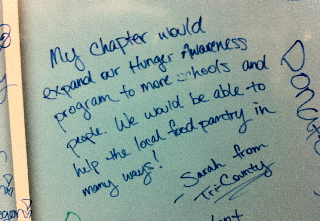 My chapter would
expand our Hunger Awareness
program to more schools and
people. We would be able to
help the local food pantry in
many ways!
- Sarah from
Tri-County